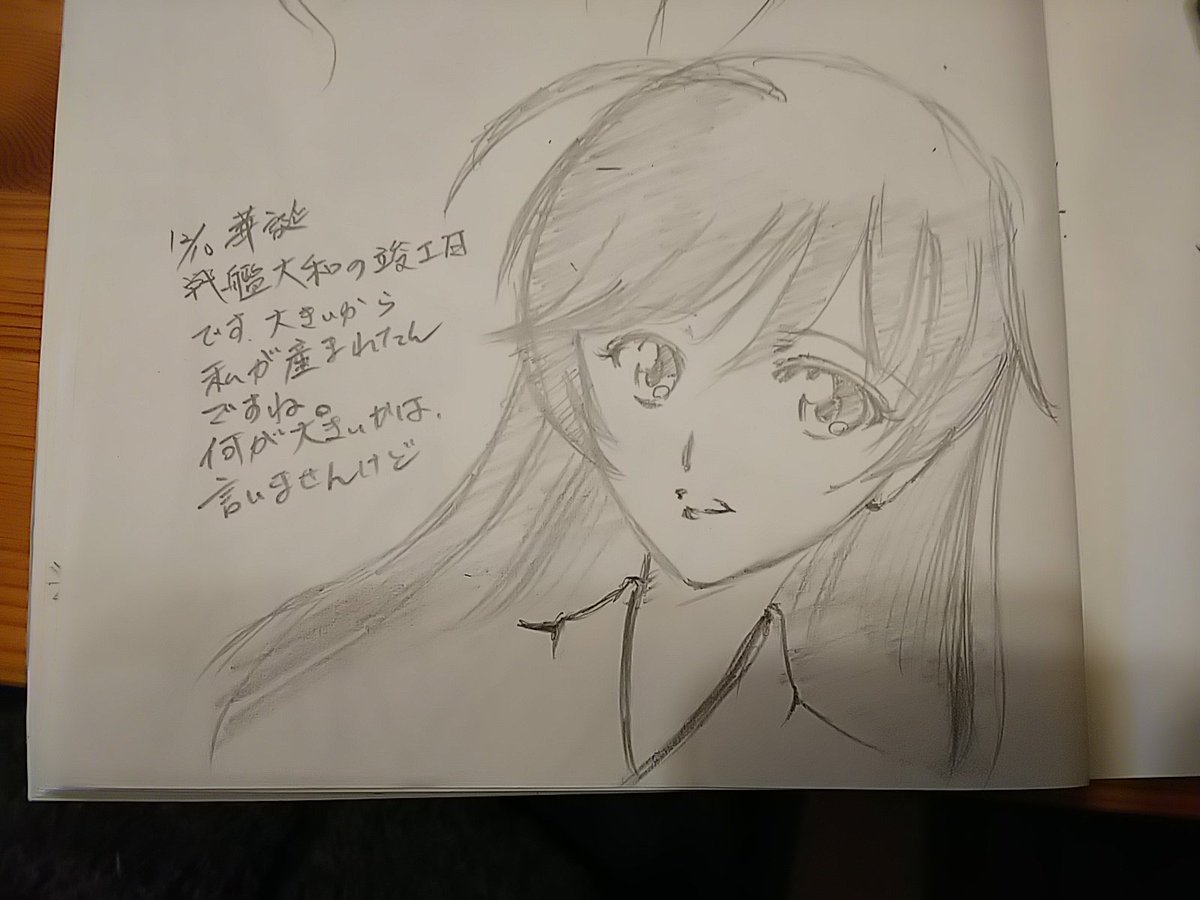 12/10 華誕
戦艦大和の竣工日
です。大きいから
私が産まれたん
ですね。
何が大きいかは、
言いませんけど